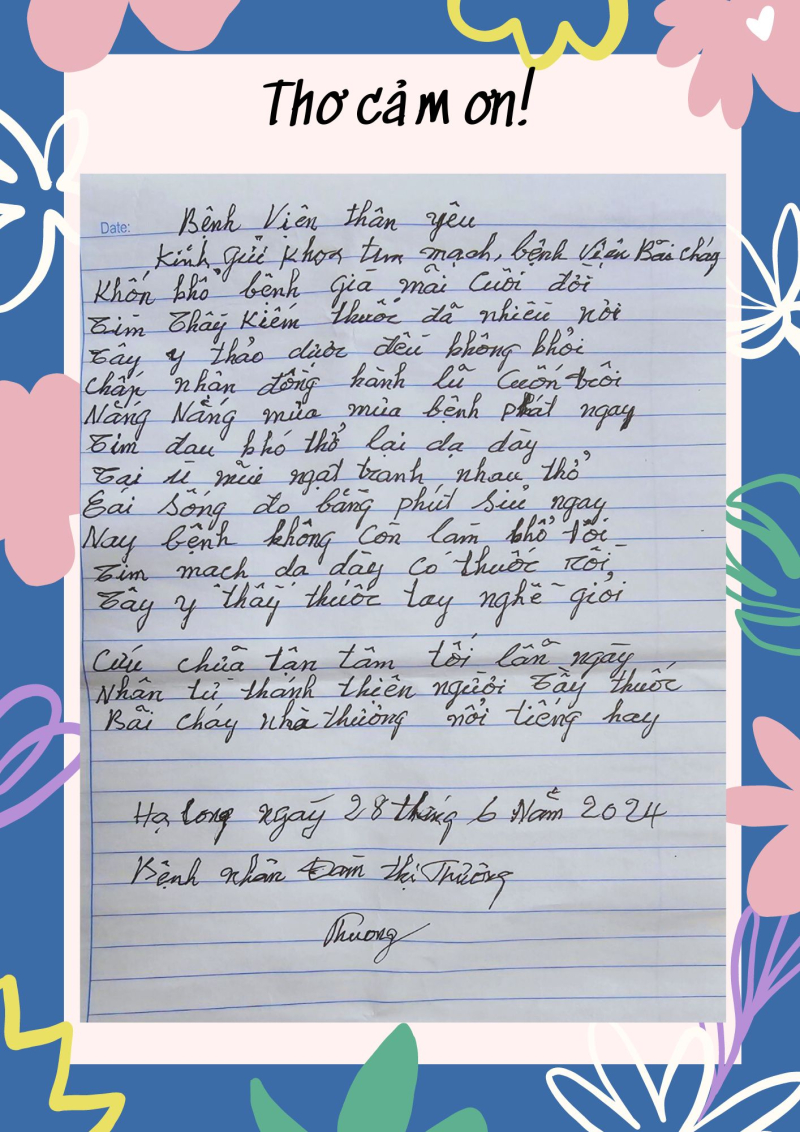 Thơ cảm ơn!
Date:
Bệnh Viện thân yêu
Kính gửi khoa tim mạch, bệnh viện Bãi cháy
Khốn khổ bệnh già mãi cuối đời
Tìm Thầy Kiếm thuốc đã nhiều nơi
Tây y thảo dược đều không khỏi
chán nhân đồng hành lũ cuốn trôi
Nằng Nặng mùa mùa bệnh phát ngay
Tim đau khó thở lại dạ dày
Tai ù mũi ngạt tranh nhau thở
Cái sống đo bằng phút giờ ngay
Nay bệnh không còn làm khổ tôi
Tim mạch dạ dày có thuốc rồi
Tây y thầy thuốc tay nghề giỏi
Cứu chữa tận tâm tối lẫn ngày
Nhân từ thánh thiện người Thầy thuốc
Bãi cháy nhà thương nổi tiếng hay
Hạ long ngày 28 tháng 6 Năm 2024
Bệnh nhân Đàm thị Thương
Thương